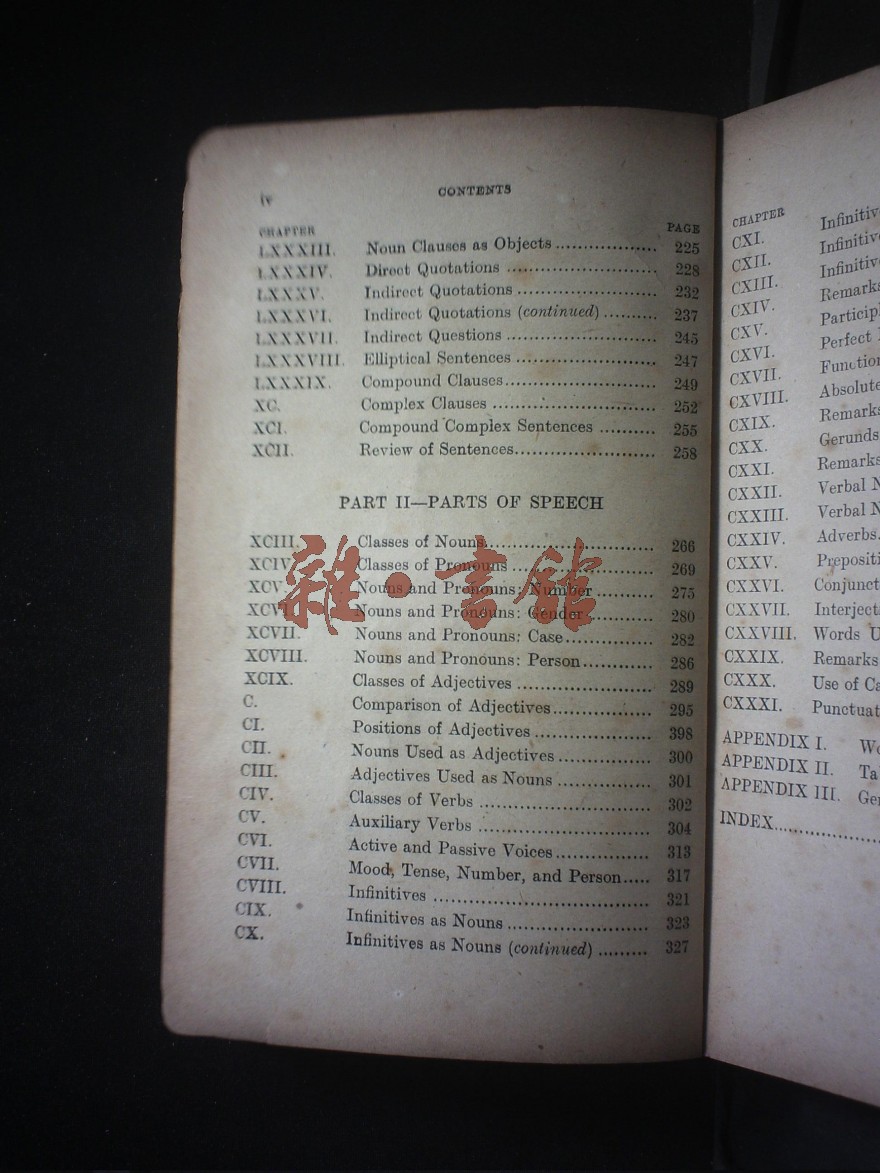 iv
CONTENTS
CHAPTER PAGE
LXXXIII. Noun Clauses as Objects ................. 225
LXXXIV. Direct Quotations ......................... 228
LXXXV. Indirect Quotations ....................... 232
LXXXVI. Indirect Quotations (continued) ......... 237
LXXXVII. Indirect Questions ......................... 245
LXXXVIII. Elliptical Sentences ....................... 247
LXXXIX. Compound Clauses......................... 249
XC. Complex Clauses ........................... 252
XCI. Compound Complex Sentences .......... 255
XCII. Review of Sentences........................ 258
PART II—PARTS OF SPEECH
XCIII. Classes of Nouns............................ 266
XCIV. Classes of Pronouns ........................ 269
XCV. Nouns and Pronouns: Number .......... 275
XCVI. Nouns and Pronouns: Gender ........... 280
XCVII. Nouns and Pronouns: Case............... 282
XCVIII. Nouns and Pronouns: Person............ 286
XCIX. Classes of Adjectives ....................... 289
C. Comparison of Adjectives................. 295
CI. Positions of Adjectives .................... 398
CII. Nouns Used as Adjectives................ 300
CIII. Adjectives Used as Nouns ................ 301
CIV. Classes of Verbs ............................ 302
CV. Auxiliary Verbs ............................. 304
CVI. Active and Passive Voices................ 313
CVII. Mood, Tense, Number, and Person..... 317
CVIII. Infinitives .................................... 321
CIX. Infinitives as Nouns ........................ 323
CX. Infinitives as Nouns (continued) ......... 327
雜·書館
CHAPTER
CXI. Infinitiv
CXII. Infinitiv
CXIII. Infinitiv
CXIV. Remarks
CXV. Participl
CXVI. Perfect
CXVII. Function
CXVIII. Absolute
CXIX. Remarks
CXX. Gerunds
CXXI. Remarks
CXXII. Verbal N
CXXIII. Verbal N
CXXIV. Adverbs.
CXXV. Prepositi
CXXVI. Conjunct
CXXVII. Interject
CXXVIII. Words U
CXXIX. Remarks
CXXX. Use of Ca
CXXXI. Punctuat
APPENDIX I. Wo
APPENDIX II. Ta
APPENDIX III. Ger
INDEX..................